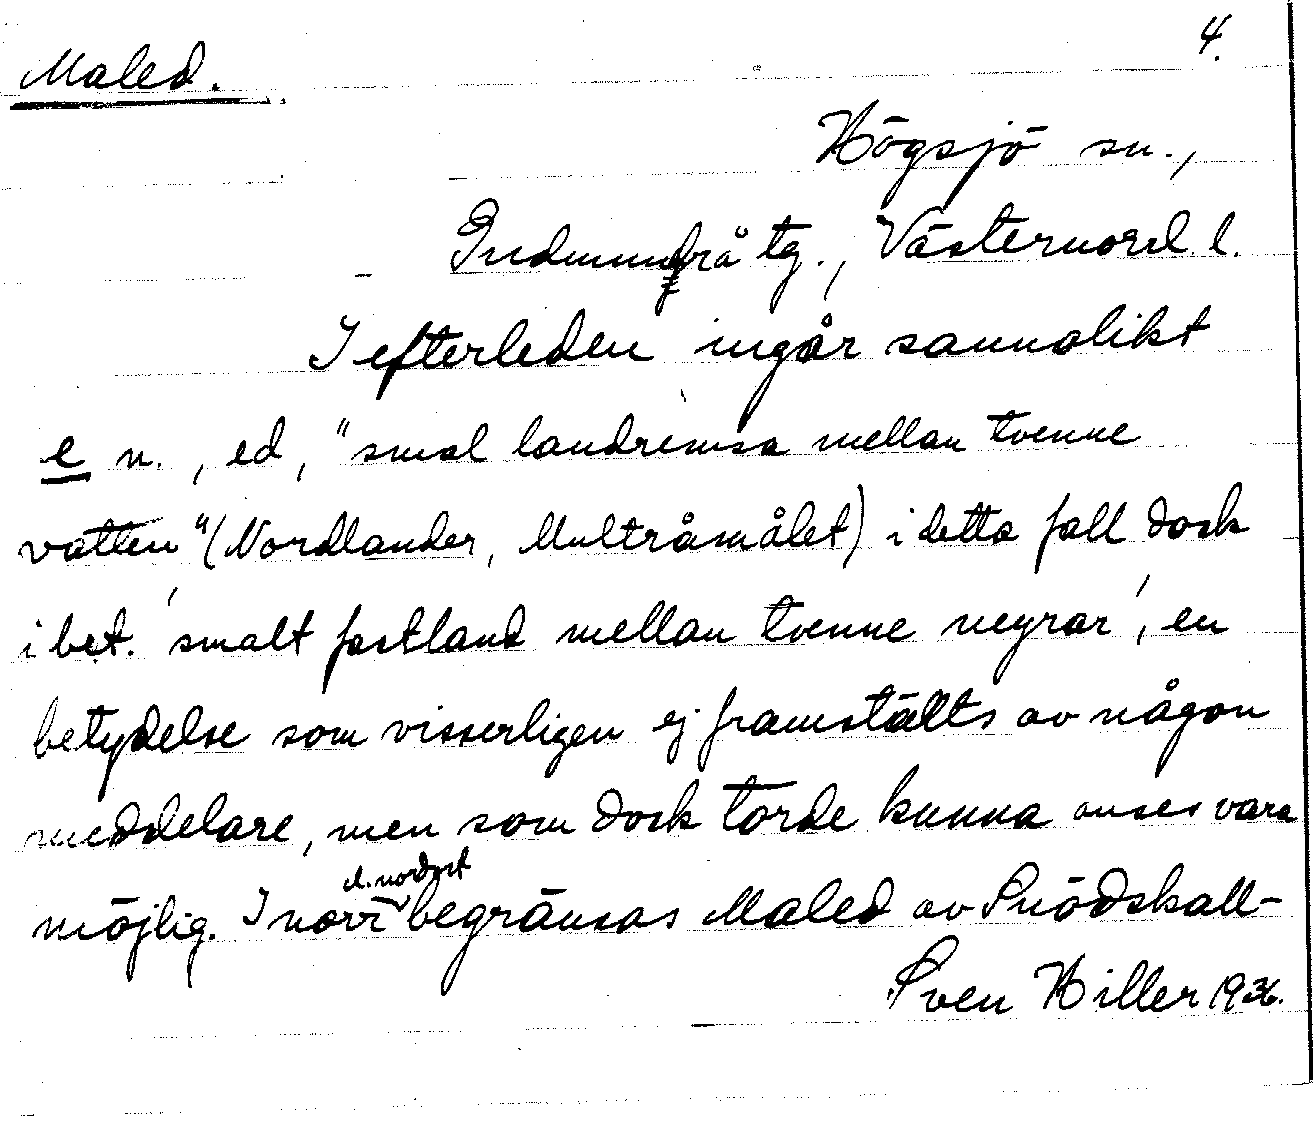 4.
Maled.
Högsjö sn.,
Gudmundrå tg., Västernorrl. l.
I efterleden ingår sannolikt
e n., ed, "smal landremsa mellan tvenne
vatten" (Nordlander, Multråmålet) i detta fall dock
i bet. 'smalt fastland mellan tvenne myrar', en
betydelse som visserligen ej framställts av någon
meddelare, men som dock torde kunna anses vara
möjlig. I norr o. nordost begränsas Maled av Snödskall-
Sven Hiller 1936.